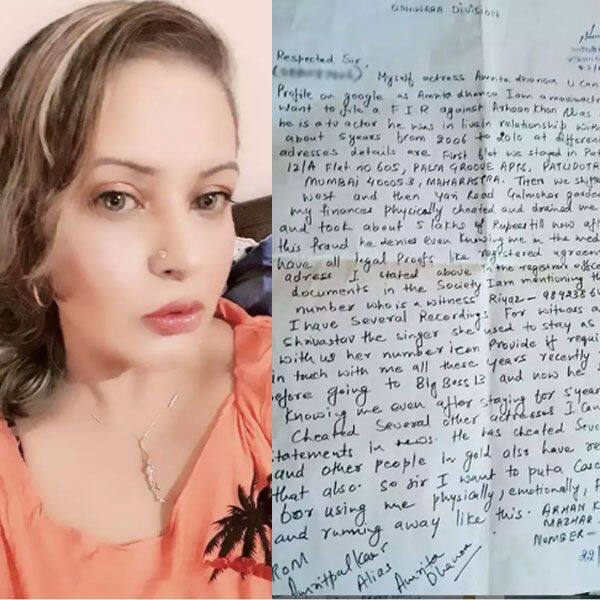 OSHWARA DIVISION
Respected Sir,
Myself actress Amrita dhanoa U can
Profile on google as Amrita dhanoa I am a
Want to file a F I R against Arhaan Khan Alias
he is a tv actor he was in livein relationship with
about 5 years from 2006 to 2010 at different
adresses details are First flat we stayed in
12/A Flat no 605, PALM GROOVE APTS, PATLIDOTR
MUMBAI 400053, MAHARASTRA. Then we shift
West and then Yari Road Gulmohar garden
my finances physically cheated and drained me
and took about 5 lakhs of Rupees till now aft
this fraud he denies even knowing me in the med
have all legal Proofs like registered agreem
adress I stated above the registrar office
documents in the Society Iam mentioning th
number who is a witness Riyaz -
I have Several Recordings For witness a
Shrivastav the singer she used to stay as
with us her number ican Provide if requi
in touch with me all these years recently
efore going to Big Boss 13 and now he
Knowing me even after staying for 5 year
Cheated Several other actresses I Can
tatements in news. He has cheated Seve
and other people in gold also have re
that also. So sir I want to put a Case
for using me physically, emotionally, f
and running away like this. ARHAN K
MAZHAR
NUMBER -
ROM
Amritpalkaur
Alias Amrita
Dhanoa
22